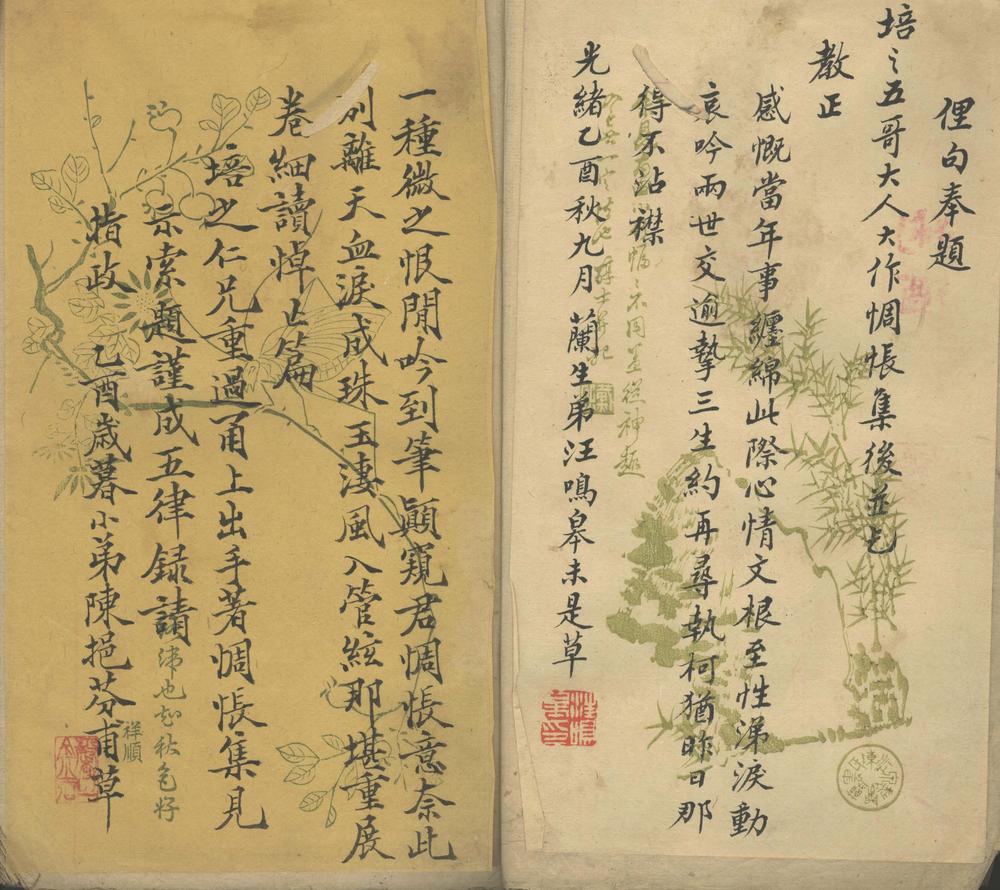 俚句奉題
培之五哥大人大作惆悵集後並乞
教正
感慨當年事纏綿此際心情文根至性涕淚動
哀吟兩世交逾摯三生約再尋執柯猶昨日那
得不沾襟
光緒乙酉秋九月蘭生弟汪鳴皋未是草
一種微之恨閒吟到筆顛窺君惆悵意奈此
別離天血淚成珠玉淒風入管絃那堪重展
卷細讀悼亡篇
培之仁兄重過甬上出手著惆悵集見
示索題謹成五律録請
指政 乙酉歳暮小弟陳挹芬甫草
秋色好
祥順